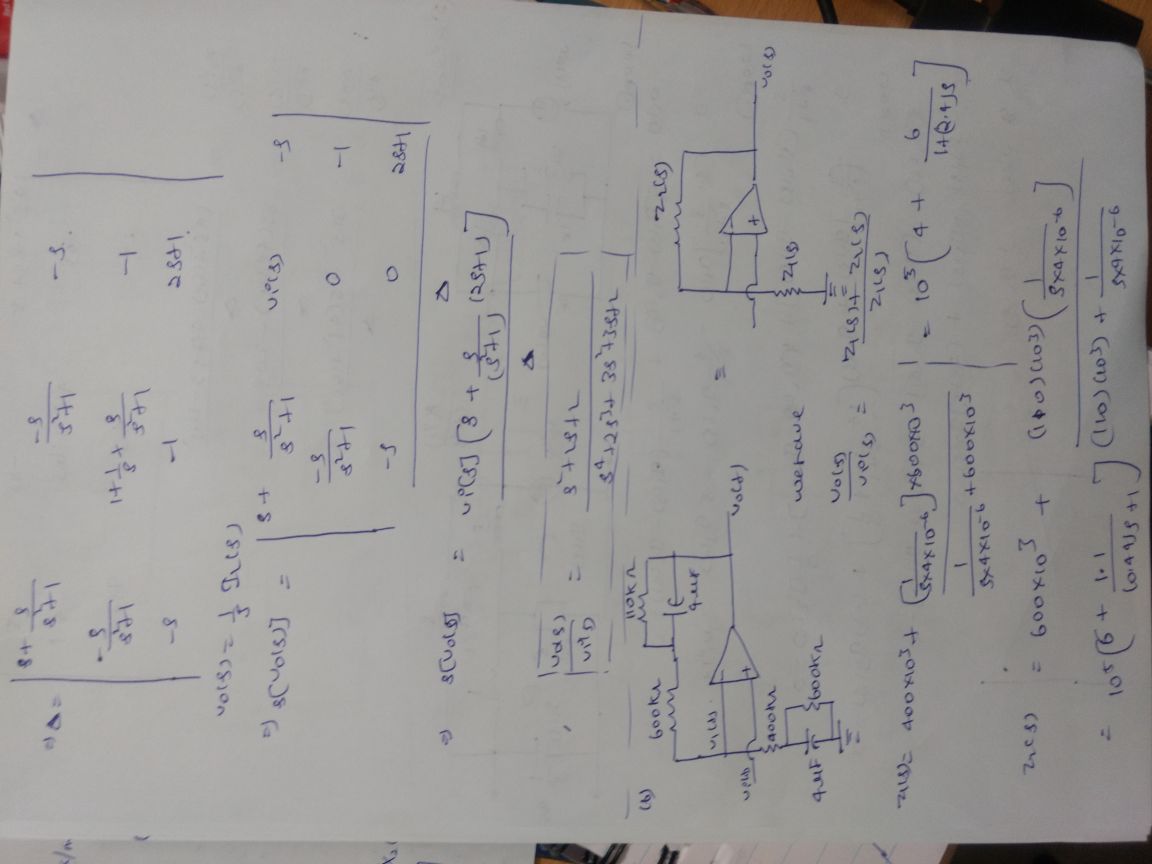 =) Δ = | s + s/(s²+1)   -s/(s²+1)   -s |
| -s/(s²+1)   1+1/s+s/(s²+1)   -1 |
| -s   -1   2s+1 |
vo(s) = 1/s I₂(s)
=) s[vo(s)] = | s + s/(s²+1)   vi(s)   -s |
| -s/(s²+1)   0   -1 |
| -s   0   2s+1 |
Δ
=) s[vo(s)] = vi(s)[s + s/(s²+1) (2s+1)]
Δ
vo(s)/vi(s) = (s²+2s+2)/(s⁴+2s³+3s²+3s+2)
(b)
600kΩ 110kΩ
4μF
v1(s)
vi(s)
- +
vo(t)
400kΩ
4μF 600kΩ
=
Z2(s)
- +
vo(s)
Z1(s)
we have
vo(s)/vi(s) = (Z1(s) + Z2(s))/Z1(s)
Z1(s) = 400×10³ + [1/(s×4×10⁻⁶)]×600×10³ / (1/(s×4×10⁻⁶) + 600×10³) = 10⁵[4 + 6/(1+(2.4)s)]
Z2(s) = 600×10³ + (110)(10³)(1/(s×4×10⁻⁶)) / ((110)(10³) + 1/(s×4×10⁻⁶))
= 10⁵[6 + 1.1/(0.44s+1)]